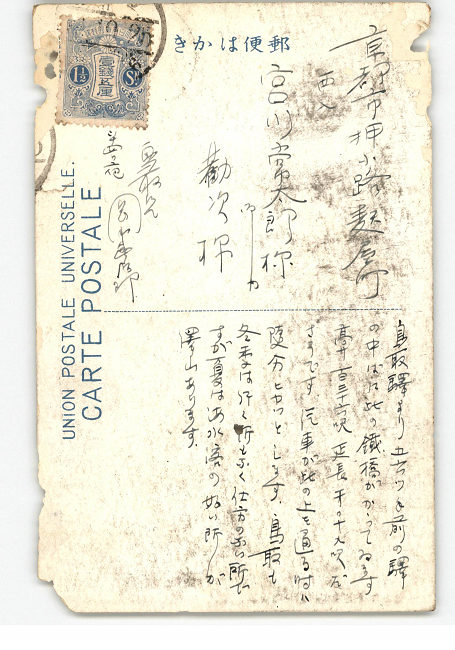 郵便はかき
UNION POSTALE UNIVERSELLE.
CARTE POSTALE
1½ Sn
壹錢五厘
京都市押小路麩屋町
西入
宮川常太郎様
勸次様
鳥取
鳥取驛より五六ツ手前の驛
の中ばに此の鐵橋がかつてゐます
高サ百三十六呎延長千〇十九呎だ
さうです 汽車が此の上を通る時は
随分ヒヤッとします、鳥取も
冬季は行く所もなく仕方のない所だ
が夏は海水浴の好い所が
澤山あります